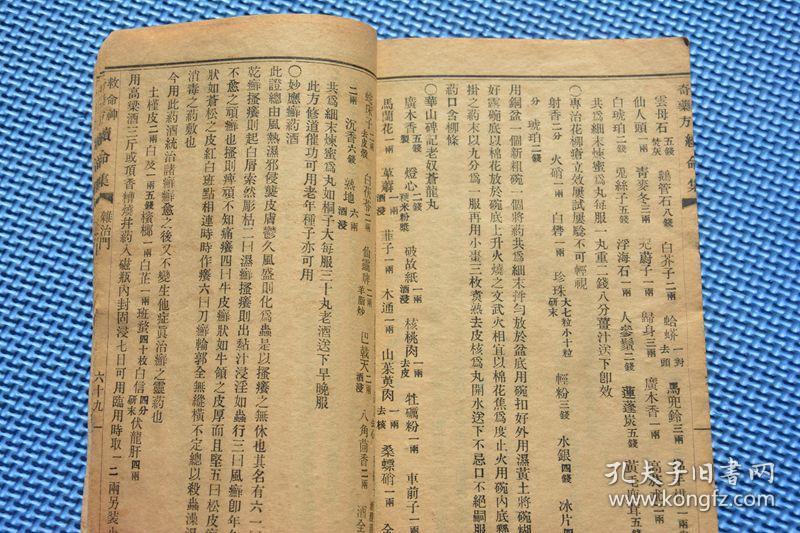 奇藥方續命集
雲母石五錢 焚灰 鵝管石八錢 白芥子二兩 蛤蚧一對 去頭 馬兜鈴三兩
仙人頭一兩 青麥冬三兩 元蔘子一兩 歸身三兩 廣木香一兩
白琥珀二錢 兎絲子五錢 浮海石一兩 人參鬚二錢 蓮蓬炭五錢
共爲細末煉蜜爲丸每服一丸重二錢八分薑汁送下卽效
〇專治花柳瘡立效屢試屢騐不可輕視
射香二分 火硝一兩 白礬一兩 珍珠大七粒小十粒 研末 輕粉三錢 水銀四錢 冰片四
分 琥珀二錢
用銅盆一個新粗碗一個將药共爲細末拌勻放於盆底用碗扣好外用濕黃土將碗糊
好露碗底以棉花放於碗底上升火燒之文武火相宜以棉花焦爲度止火用碗內底懸
掛之药末以九分爲一丸服再用小棗三枚煑熟去皮核爲丸開水送下不忌口不絕嗣服
药口含柳條
〇華山碑記老奴蒼龍丸
廣木香五錢 製 燈心二錢 糯米粉漿 破故紙一兩 酒浸 核桃肉一兩 去皮 牡礪粉一兩 車前子一兩
馬蘭花一兩 萆薢一兩 酒浸 韮子一兩 木通一兩 山茱萸肉一兩 去核 桑螵硝一兩 全
蛇床子二兩 去皮 白茯苓二兩 仙靈脾二兩 羊脂炒 巴戟天二兩 酒浸 八角茴香二兩
沉香六錢 熟地六兩 酒浸
共爲細末煉蜜爲丸如桐子大每服三十丸老酒送下早晚服
此方修道催功可用老年種子亦可用
〇妙應癬药酒
此證總由風熱濕邪侵襲皮膚鬱久風盛則化爲蟲是以搔癢之無休也其名有六一
乾癬搔癢則起白屑索然彫枯二曰濕癬搔癢則出黏汁浸淫如蟲行三曰風癬卽年久
不愈之頑癬也搔則痹頑不知痛癢四曰牛皮癬狀如牛領之皮厚而且堅五曰松皮癬
狀如蒼松之皮紅白班點相連時時作癢六曰刀癬輪郭全無縱橫不定總以殺蟲滲濕
消毒之药敷也
今用此药酒統治諸癬癬愈之後又不變生他症眞治癬之靈药也
土槿皮二兩 白芨一兩五錢 檳榔一兩 白芷一兩 班蝥四十枚 白信四分 研末 伏龍肝四兩
用高粱酒三斤或頂香檸燒幷药入礠瓶內封固浸七日可用臨用時取一二兩另裝小
救命神
續命集
雜治門
六十九
孔夫子旧书网
www.kongfz.com